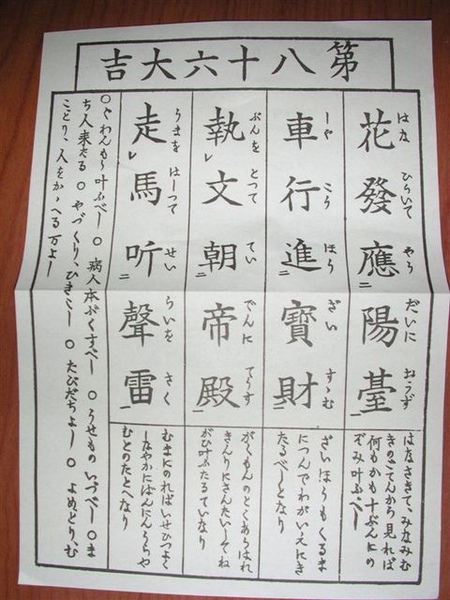 第八十六大吉
花發應二陽臺一
はな ひらいて やう だいに おうず
はなさきて、みなみむ
きのごてんから見れば
何もかも十ぶんにの
ぞみ叶ふべし
車行進二寶財一
しや こう ほう ざい すゝむ
ざいほうもくるま
につんでわがいえにき
たるべしとなり
執レ文朝二帝殿一
ぶんを とつて てい でんに てうす
がくもんのとくあらはれ
きんりにさんだいしてね
がひ叶ふたるていなり
走レ馬听二聲雷一
うまを はしつて せい らいを さく
むまにのればいせひつよく
しなやかにばんにんうらや
むとのたとへなり
○ぐわんもう叶ふべし ○病人本ぶくすべし ○うせものいづべし ○ま
ち人来たる ○やづくり、ひきこし ○たびだちよし ○よめどり、む
ことり、人をかゝへる万よし